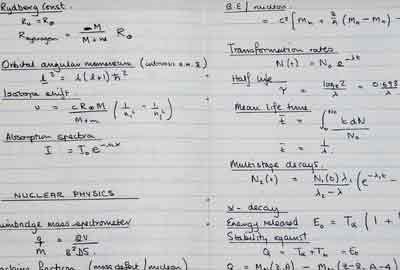 Rydberg Const.
R₀ = R∞
R hydrogen = M / M+m R∞
Orbital angular momentum
l² = l(l+1)ħ²
Isotope shift.
υ = cR∞M / M+m (1/n₁² - 1/n₂²)
Absorption spectra
I = I₀e
NUCLEAR PHYSICS
mass spectrometer
q/m =
fraction (mass defect/nucleon)
B.E/nucleon
= c² [Mn + Z/A (MH - Mn) -
Transformation rates
N(t) = N₀ e^-λt
Half life
τ = loge2 / λ = 0.693 / λ
Mean life time
t̄ = ∫ t dN / N₀
t̄ = 1/λ
Multistage decays.
N₂(t) = N₁(0) λ₁ / λ₂ - λ₁ (e^-λ₁t -
α - decay
Energy released E₀ = Tα (1 +
Stability against
Q = Tα + Tb = E₀